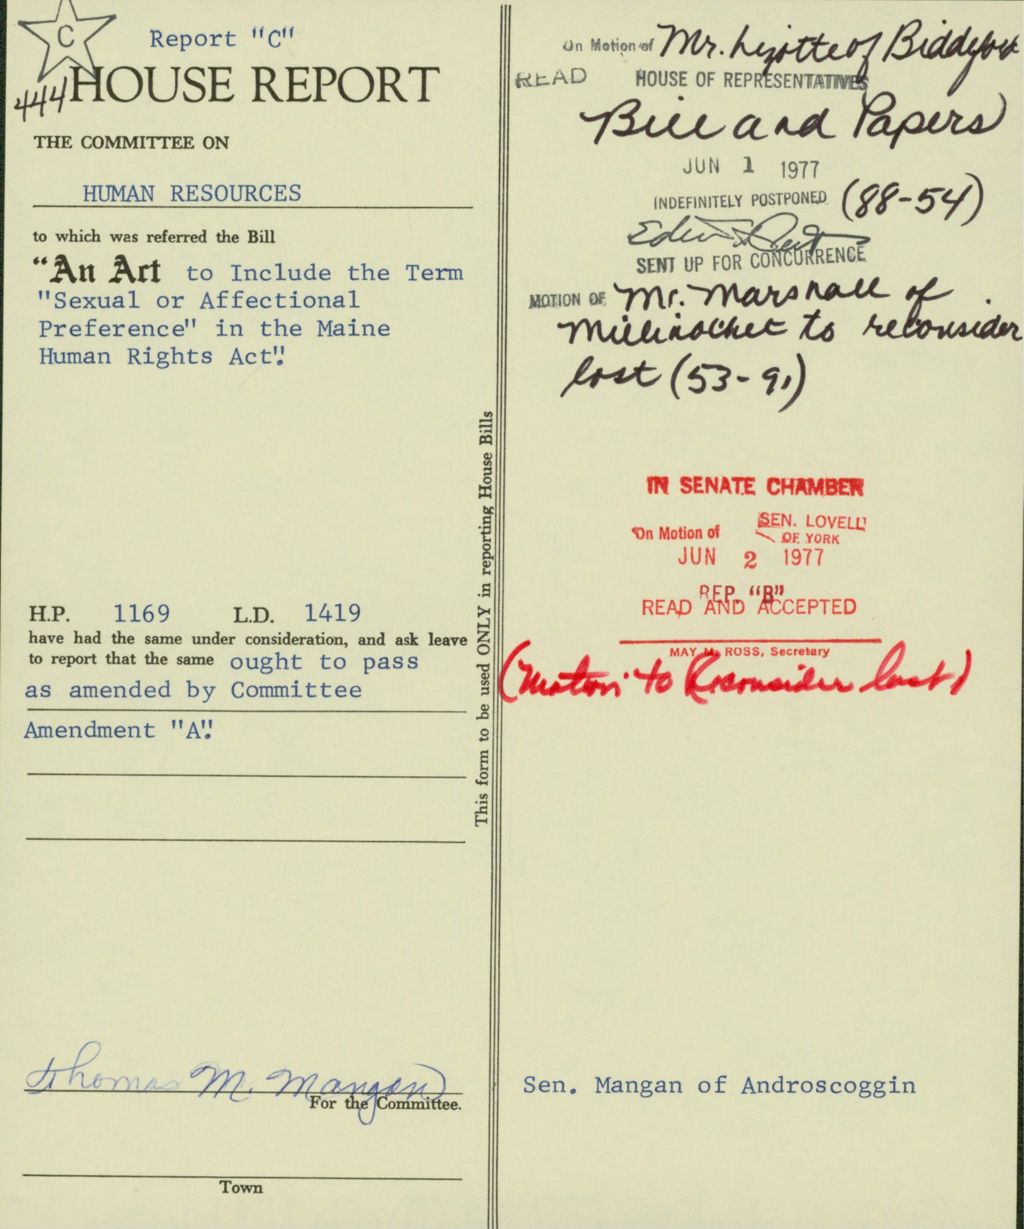 C
Report "C"
444
HOUSE REPORT
THE COMMITTEE ON
HUMAN RESOURCES
to which was referred the Bill
"An Act to Include the Term
"Sexual or Affectional
Preference" in the Maine
Human Rights Act".
H.P. 1169 L.D. 1419
have had the same under consideration, and ask leave
to report that the same ought to pass
as amended by Committee
Amendment "A".
Thomas M. Mangan
For the Committee.
Town
This form to be used ONLY in reporting House Bills
On Motion of Mr. Lizotte of Biddeford
READ HOUSE OF REPRESENTATIVES
Bill and Papers
JUN 1 1977
INDEFINITELY POSTPONED (88-54)
SENT UP FOR CONCURRENCE
MOTION OF Mr. Marshall of
Millinocket to reconsider
lost (53-91)
IN SENATE CHAMBER
On Motion of SEN. LOVELL
OF YORK
JUN 2 1977
REP. "B"
READ AND ACCEPTED
MAY M. ROSS, Secretary
(Motion to Reconsider lost)
Sen. Mangan of Androscoggin